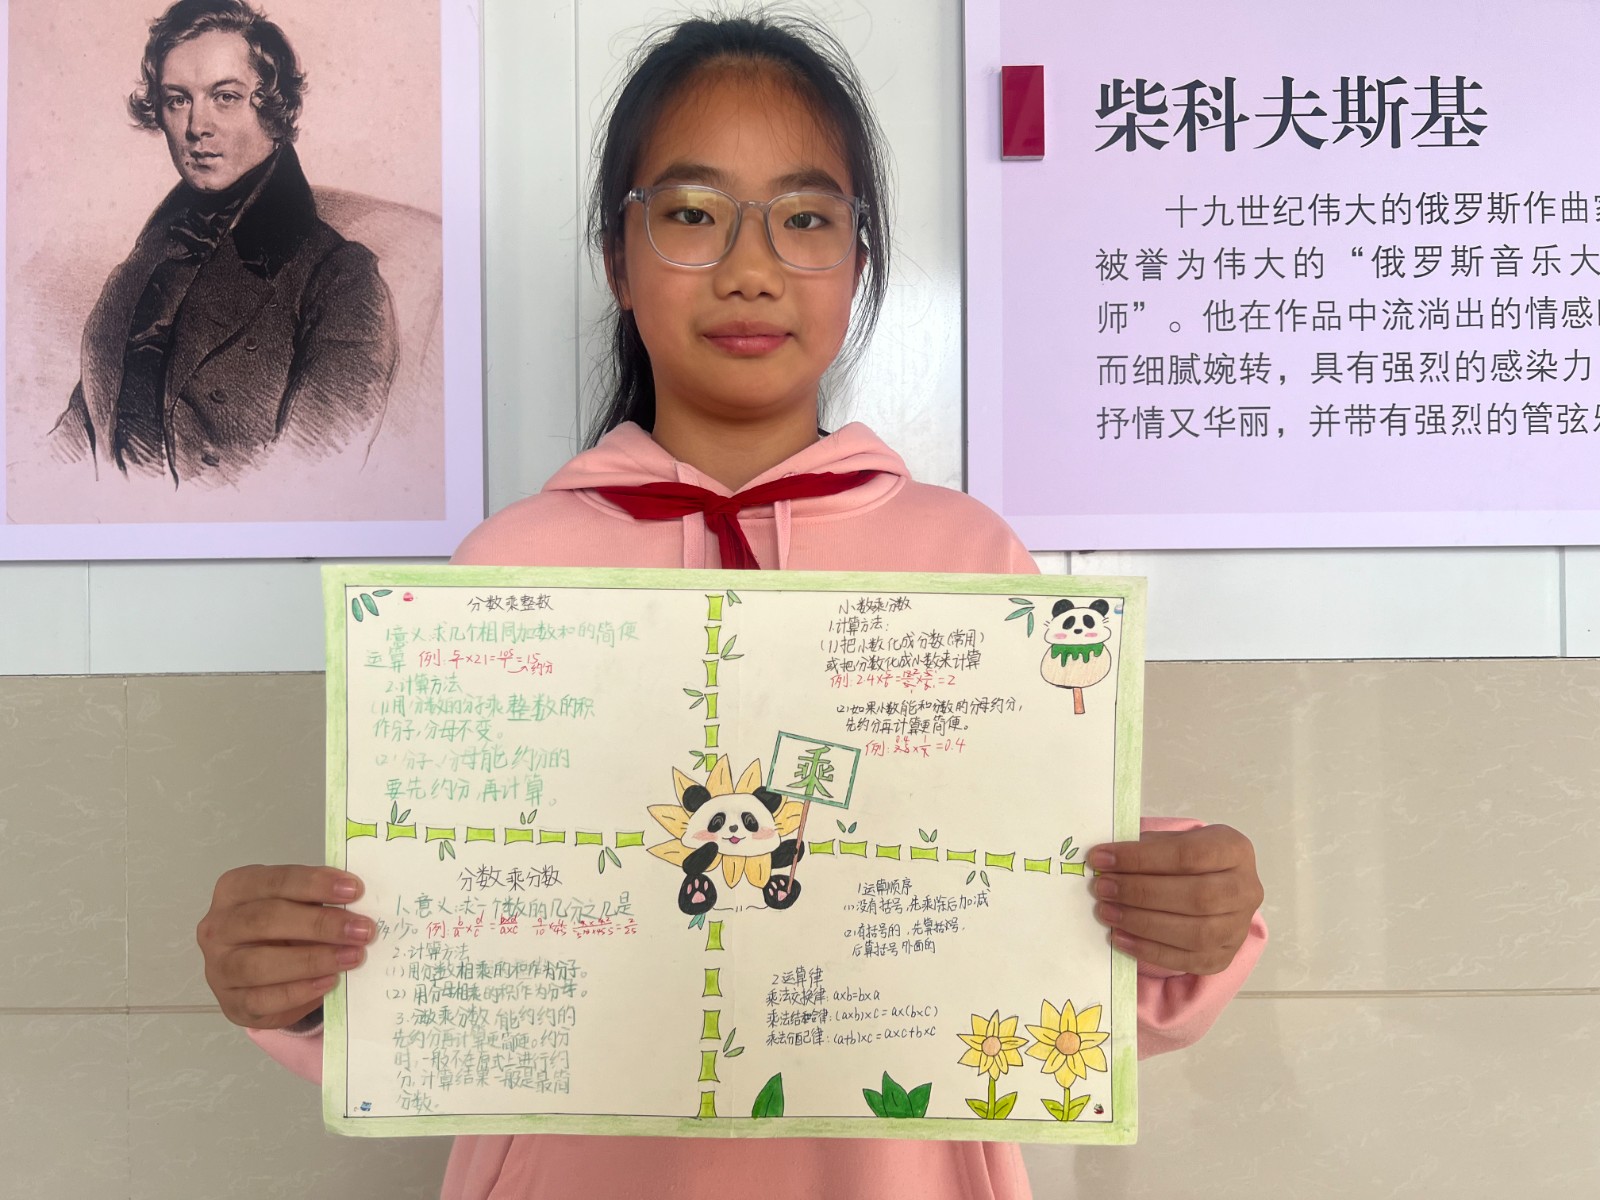 柴科夫斯基
十九世纪伟大的俄罗斯作曲家
被誉为伟大的“俄罗斯音乐大
师”。他在作品中流淌出的情感
而细腻婉转，具有强烈的感染力
抒情又华丽，并带有强烈的管弦乐
分数乘整数
1.意义:求几个相同加数和的简便
运算 例: ×21=105/7=15
约分
2.计算方法
(1)用分数的分子乘整数的积
作分子,分母不变。
(2)分子、分母能约分的
要先约分,再计算。
小数乘分数
1.计算方法:
(1)把小数化成分数(常用)
或把分数化成小数来计算
例: 2.4× = × =2
(2)如果小数能和分数的分母约分,
先约分再计算更简便。
例: × =0.4
乘
分数乘分数
1、意义:求一个数的几分之几是
多少。例: b/a×d/c=b×d/a×c 9/10×4/45= =2/25
2.计算方法
(1)用分数相乘的积作为分子。
(2)用分母相乘的积作为分母。
3.分数乘分数 能约约的
先约分再计算更简便。约分
时,一般不在原式上进行约
分,计算结果一般是最简
分数。
1.运算顺序
(1)没有括号,先乘除后加减
(2)有括号的,先算括号,
后算括号外面的
2运算律
乘法交换律: a×b=b×a
乘法结合律: (a×b)×c=a×(b×c)
乘法分配律: (a+b)×c=a×c+b×c